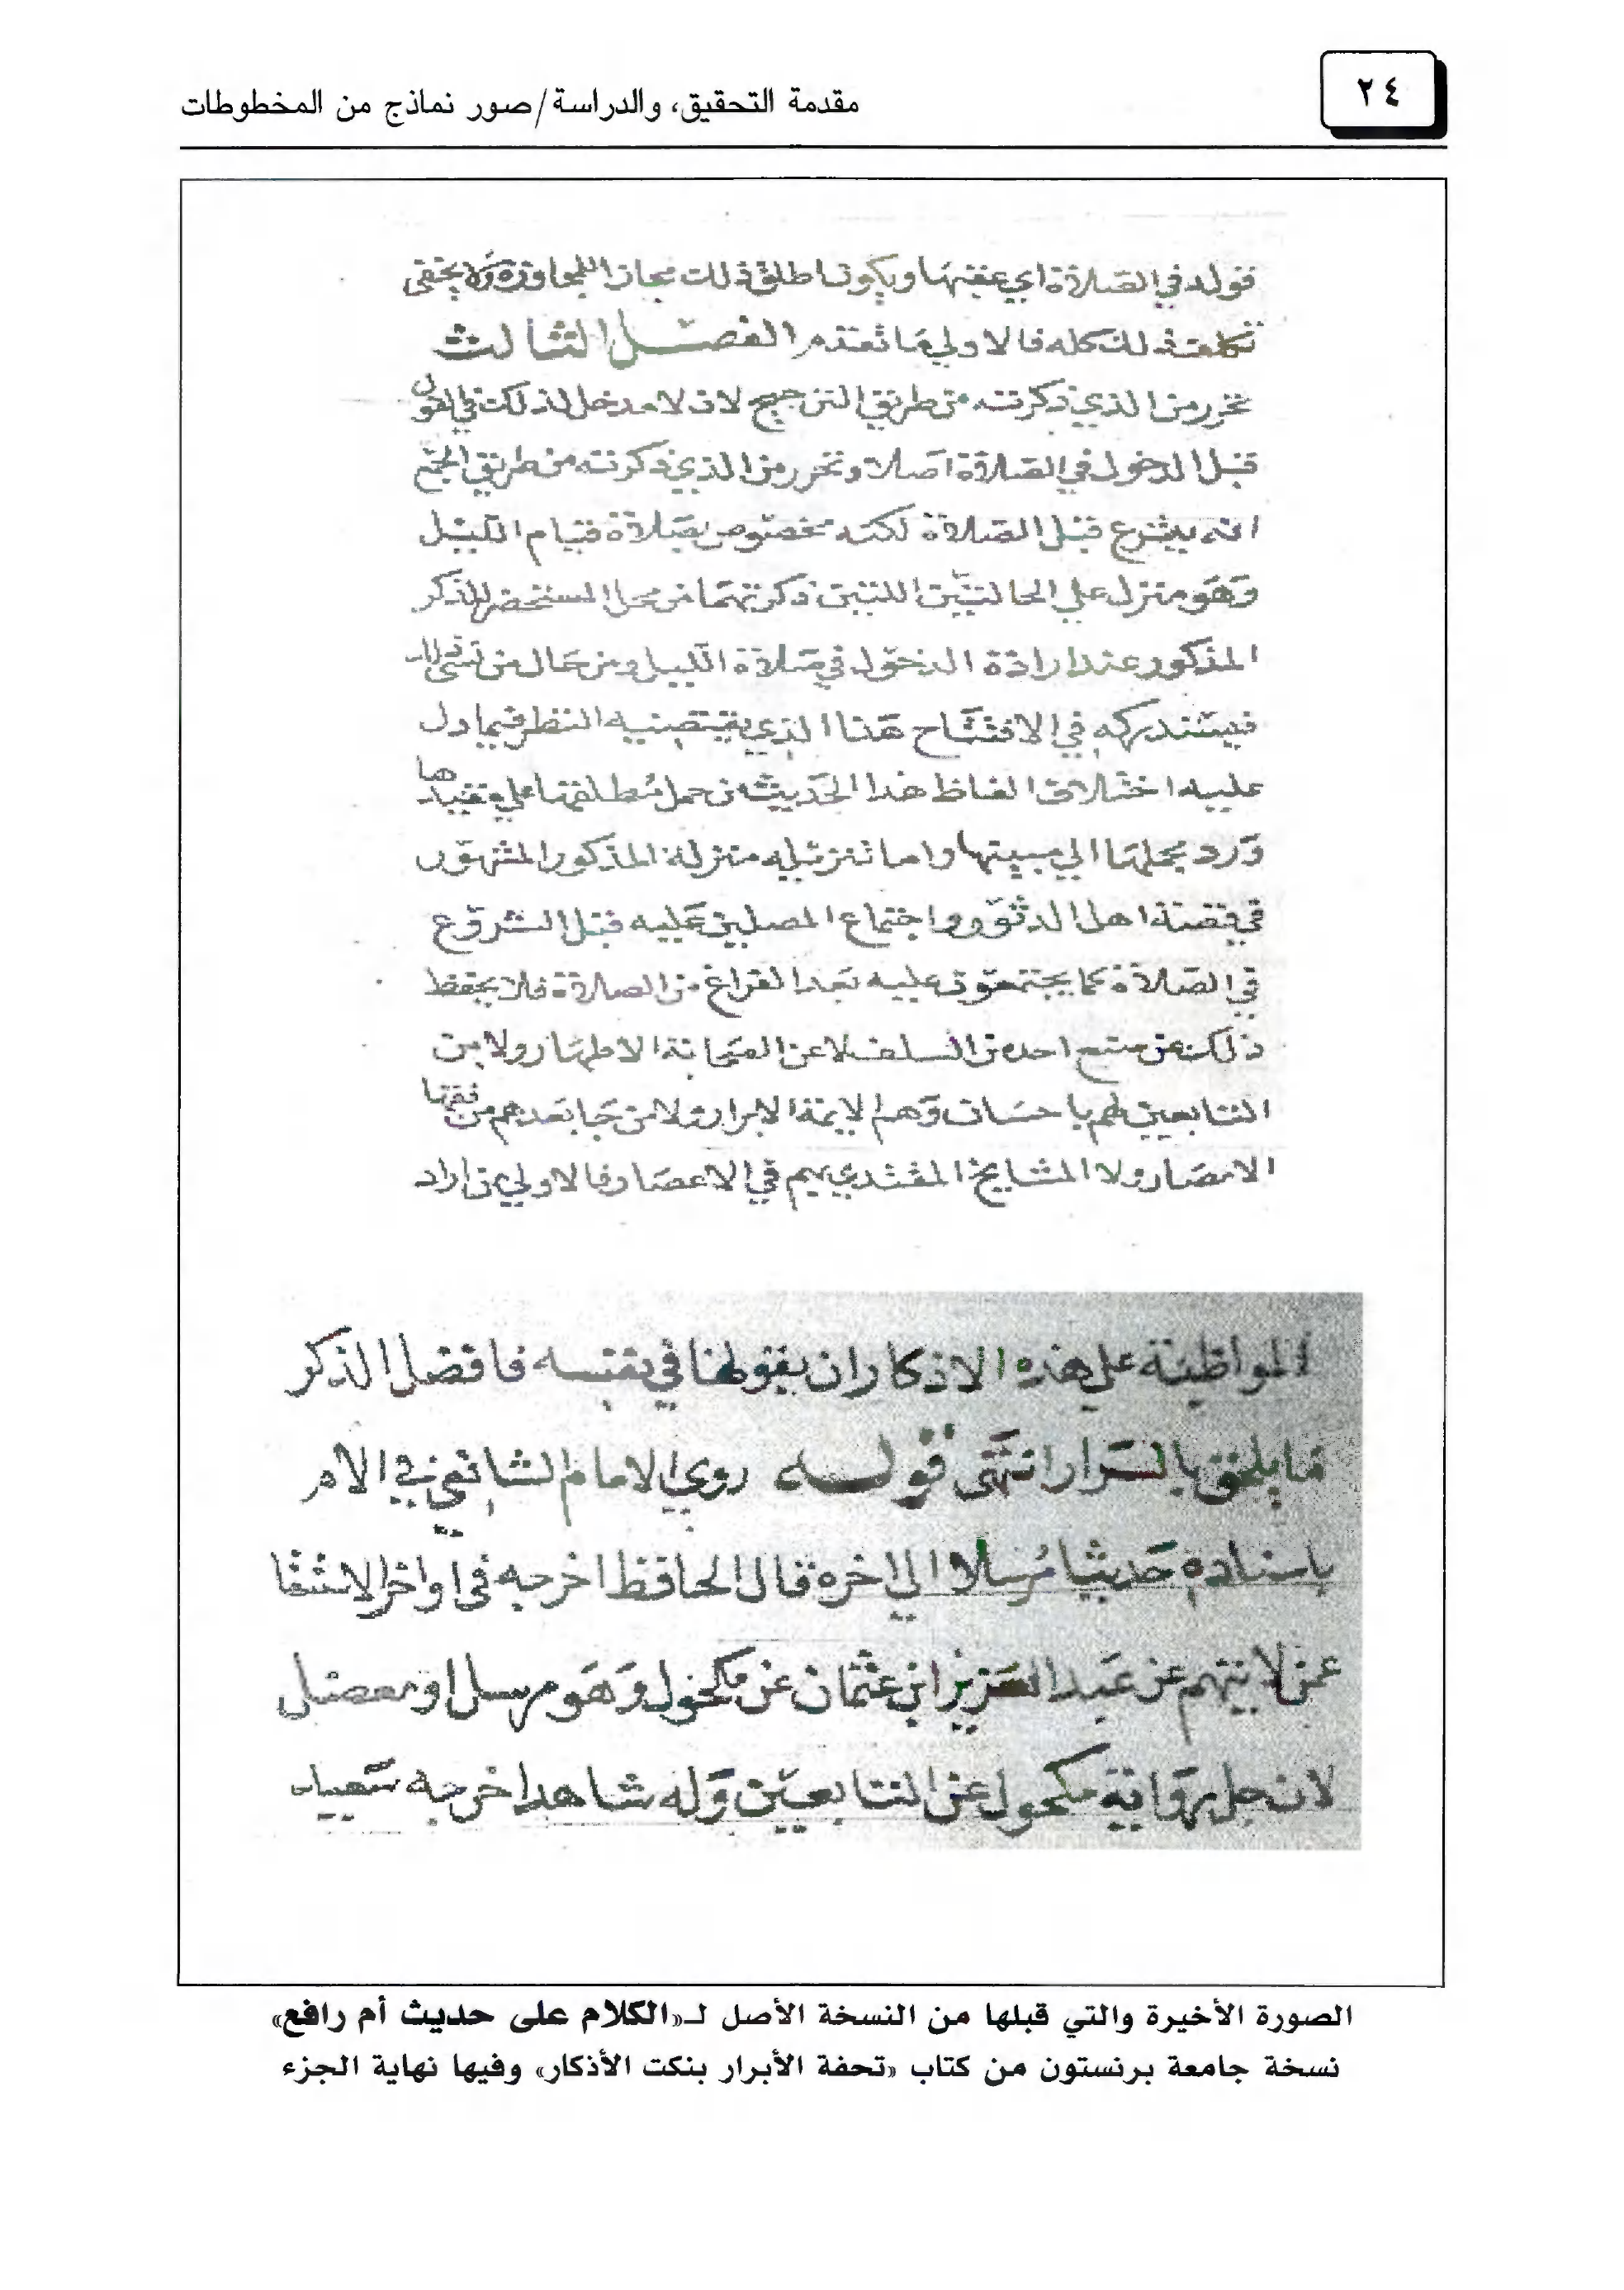 ٢٤
مقدمة التحقيق، والدراسة/صور نماذج من المخطوطات
قوله في الصلاة اي عقبها ويكون اطلق ذلك مجازا للمجاورة ولا يخفى
تكلف ذلك كله فالاولي ما تقدم الفصل الثالث
تحرر من الذي ذكرته من طريق الترجيح لانه لا مدخل لذلك في القول
قبل الدخول في الصلاة اصلا وتحرر من الذي ذكرته من طريق الجمع
انه يشرع قبل الصلاة لكنه مخصوص بصلاة قيام الليل
وهو منزل علي الحالتين اللتين ذكرتهما من حال المستحضر للذكر
المذكور عند ارادة الدخول في صلاة الليل ومن حال من نسي ذلك
فيستدركه في الافتتاح هذا الذي يقتضيه النظر فيما دل
عليه اختلاف الفاظ هذا الحديث من حمل مطلقها علي مقيدها
ورد مجملها الي مبينها واما تنزيله منزلة المذكور المشهور
في قصة اهل الدثور واجتماع المصلين عليه قبل الشروع
في الصلاة كما يجتمعون عليه بعد الفراغ من الصلاة فلا يحفظ
ذلك عن صنيع احد من السلف لا عن الصحابة الاطهار ولا من
التابعين لهم باحسان وهم الايمة الابرار ولا من جا بعدهم من فقها
الامصار ولا المشايخ المقتدي بهم في الاعصار فالاولي من اراد
المواظبة على هذه الاذكار ان يقولها في نفسه فافضل الذكر
ما يلحق بالسرار انتهى قوله روي الامام الشافعي في الام
باسناده حديثا مرسلا الي اخره قال الحافظ اخرجه في اواخر الاستسقا
عمن لا يتهم عن عبد العزيز ابن عثمان عن مكحول وهو مرسل او معضل
لان جل رواية مكحول عن التابعين وله شاهد اخرجه سعيد
الصورة الأخيرة والتي قبلها من النسخة الأصل لـ«الكلام على حديث أم رافع»
نسخة جامعة برنستون من كتاب «تحفة الأبرار بنكت الأذكار» وفيها نهاية الجزء